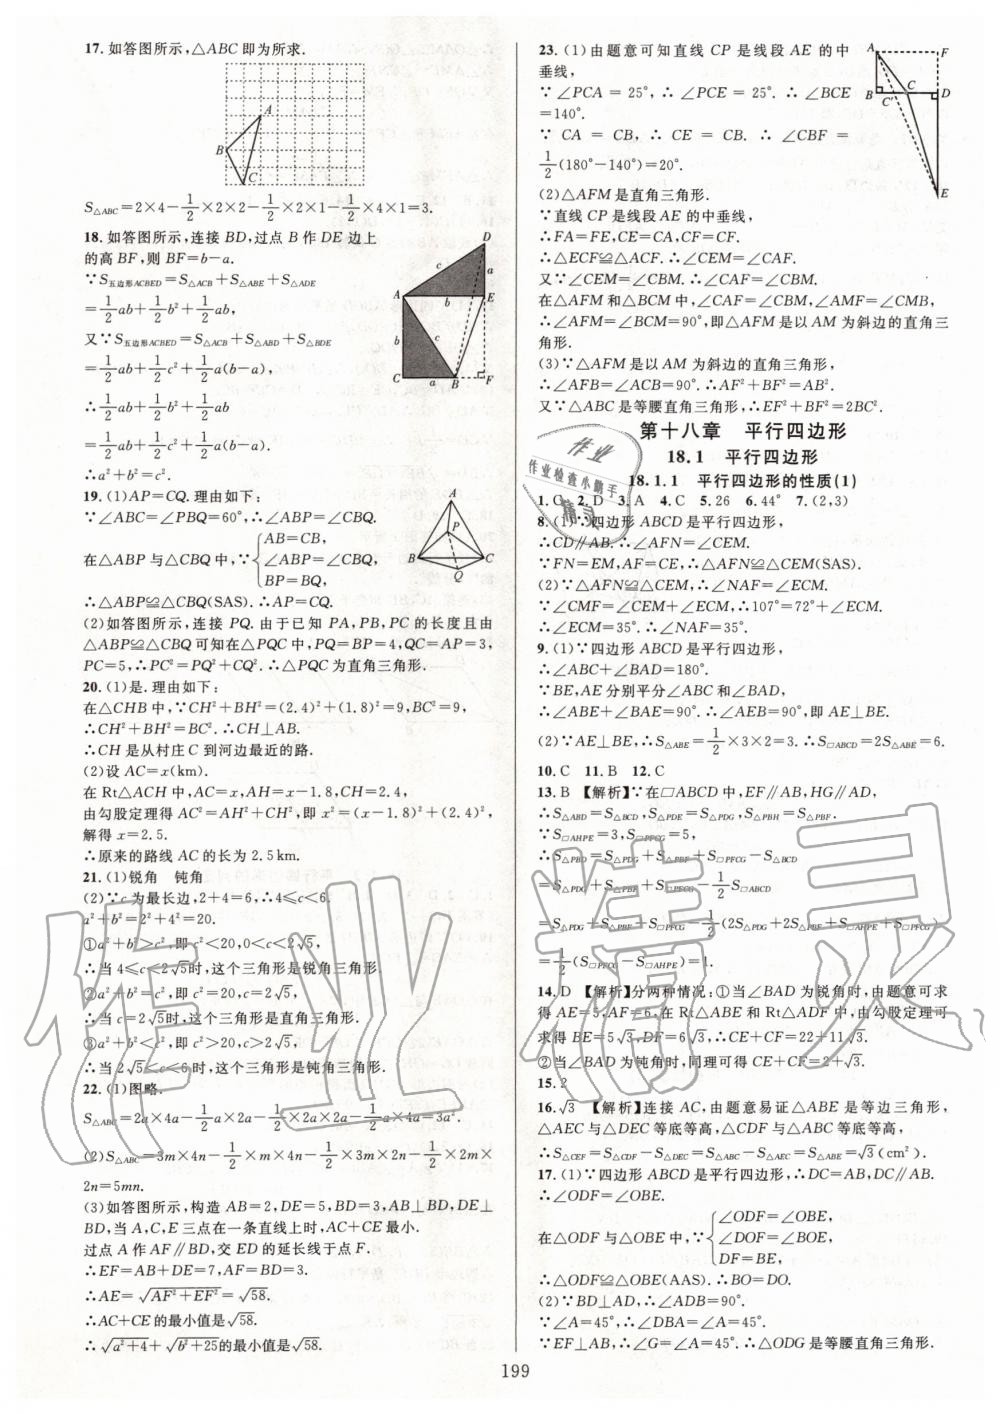 17. 如答图所示,△ABC 即为所求.
A
B
C
S△ABC=2×4-1/2×2×2-1/2×2×1-1/2×4×1=3.
18. 如答图所示,连接 BD,过点 B 作 DE 边上
的高 BF,则 BF=b-a.
∵S五边形ACBED=S△ACB+S△ABE+S△ADE
=1/2ab+1/2b²+1/2ab,
又∵S五边形ACBED=S△ACB+S△ABD+S△BDE
=1/2ab+1/2c²+1/2a(b-a),
∴1/2ab+1/2b²+1/2ab
=1/2ab+1/2c²+1/2a(b-a).
∴a²+b²=c².
D
c
a
A
b
E
b
c
C
a
B
F
19. (1)AP=CQ. 理由如下:
∵∠ABC=∠PBQ=60°,∴∠ABP=∠CBQ.
AB=CB,
在△ABP 与△CBQ 中,∵{∠ABP=∠CBQ,
BP=BQ,
∴△ABP≌△CBQ(SAS). ∴AP=CQ.
A
P
B
C
Q
(2)如答图所示,连接 PQ. 由于已知 PA,PB,PC 的长度且由
△ABP≌△CBQ 可知在△PQC 中,PQ=BP=4,QC=AP=3,
PC=5,∴PC²=PQ²+CQ². ∴△PQC 为直角三角形.
20. (1)是. 理由如下:
在△CHB 中,∵CH²+BH²=(2.4)²+(1.8)²=9,BC²=9,
∴CH²+BH²=BC². ∴CH⊥AB.
∴CH 是从村庄 C 到河边最近的路.
(2)设 AC=x(km).
在 Rt△ACH 中,AC=x,AH=x-1.8,CH=2.4,
由勾股定理得 AC²=AH²+CH²,即 x²=(x-1.8)²+(2.4)²,
解得 x=2.5.
∴原来的路线 AC 的长为 2.5 km.
21. (1)锐角 钝角
(2)∵c 为最长边,2+4=6,∴4≤c<6.
a²+b²=2²+4²=20.
①a²+b²>c²,即 c²<20,0<c<2√5,
∴当 4≤c<2√5时,这个三角形是锐角三角形.
②a²+b²=c²,即 c²=20,c=2√5,
∴当 c=2√5时,这个三角形是直角三角形.
③a²+b²<c²,即 c²>20,c>2√5,
∴当 2√5<c<6时,这个三角形是钝角三角形.
22. (1)图略.
S△ABC=2a×4a-1/2a×2a-1/2×2a×2a-1/2a×4a=3a².
(2)S△ABC=3m×4n-1/2×m×4n-1/2×3m×2n-1/2×2m×
2n=5mn.
(3)如答图所示,构造 AB=2,DE=5,BD=3,AB⊥BD,DE⊥
BD,当 A,C,E 三点在一条直线上时,AC+CE 最小.
过点 A 作 AF∥BD,交 ED 的延长线于点 F.
∴EF=AB+DE=7,AF=BD=3.
∴AE=√(AF²+EF²)=√58.
∴AC+CE 的最小值是√58.
∴√(a²+4)+√(b²+25)的最小值是√58.
23. (1)由题意可知直线 CP 是线段 AE 的中
垂线,
∵∠PCA=25°,∴∠PCE=25°. ∴∠BCE
=140°.
∵CA=CB,∴CE=CB. ∴∠CBF=
1/2(180°-140°)=20°.
(2)△AFM 是直角三角形.
∵直线 CP 是线段 AE 的中垂线,
∴FA=FE,CE=CA,CF=CF.
∴△ECF≌△ACF. ∴∠CEM=∠CAF.
又∵∠CEM=∠CBM,∴∠CAF=∠CBM.
A
F
B
C′
C
D
E
在△AFM 和△BCM 中,∠CAF=∠CBM,∠AMF=∠CMB,
∴∠AFM=∠BCM=90°,即△AFM 是以 AM 为斜边的直角三
角形.
(3)∵△AFM 是以 AM 为斜边的直角三角形,
∴∠AFB=∠ACB=90°. ∴AF²+BF²=AB².
又∵△ABC 是等腰直角三角形,∴AF²+BF²=2BC².
第十八章 平行四边形
18.1 平行四边形
18.1.1 平行四边形的性质(1)
1. C 2. D 3. A 4. C 5. 26 6. 44° 7. (2,3)
8. (1)∵四边形 ABCD 是平行四边形,
∴CD∥AB. ∴∠AFN=∠CEM.
∵FN=EM,AF=CE,∴△AFN≌△CEM(SAS).
(2)∵△AFN≌△CEM,∴∠NAF=∠ECM.
∵∠CMF=∠CEM+∠ECM,∴107°=72°+∠ECM.
∴∠ECM=35°. ∴∠NAF=35°.
9. (1)∵四边形 ABCD 是平行四边形,
∴∠ABC+∠BAD=180°.
∵BE,AE 分别平分∠ABC 和∠BAD,
∴∠ABE+∠BAE=90°. ∴∠AEB=90°,即 AE⊥BE.
(2)∵AE⊥BE,∴S△ABE=1/2×3×2=3. ∴S□ABCD=2S△ABE=6.
10. C 11. B 12. C
13. B 【解析】∵在□ABCD 中,EF∥AB,HG∥AD,
∴S△ABD=S△BCD,S△PDE=S△PDG,S△PBH=S△PBF.
∵S□AHPE=3,S□PFCG=5,
∴S△PBD=S△PDG+S△PBF+S□PFCG-S△BCD
=S△PDG+S△PBF+S□PFCG-1/2S□ABCD
=S△PDG+S△PBF+S□PFCG-1/2(2S△PDG+2S△PBF+S□AHPE+S□PFCG)
=1/2(S□PFCG-S□AHPE)=1.
14. D 【解析】分两种情况:①当∠BAD 为锐角时,由题意可求
得 AE=5,AF=6,在 Rt△ABE 和Rt△ADF 中,由勾股定理可
求得 BE=5√3,DF=6√3,∴CE+CF=22+11√3.
②当∠BAD 为钝角时,同理可得 CE+CF=2+√3.
15. 2
16. √3 【解析】连接 AC,由题意易证△ABE 是等边三角形,
△AEC 与△DEC 等底等高,△CDF 与△ABC 等底等高,
∴S△CEF=S△CDF-S△DEC=S△ABC-S△AEC=S△ABE=√3(cm²).
17. (1)∵四边形 ABCD 是平行四边形,∴DC=AB,DC∥AB.
∴∠ODF=∠OBE.
∠ODF=∠OBE,
在△ODF 与△OBE 中,∵{∠DOF=∠BOE,
DF=BE,
∴△ODF≌△OBE(AAS). ∴BO=DO.
(2)∵BD⊥AD,∴∠ADB=90°.
∵∠A=45°,∴∠DBA=∠A=45°.
∵EF⊥AB,∴∠G=∠A=45°. ∴△ODG 是等腰直角三角形.
199
作业
作业检查小助手
精灵
作业精灵